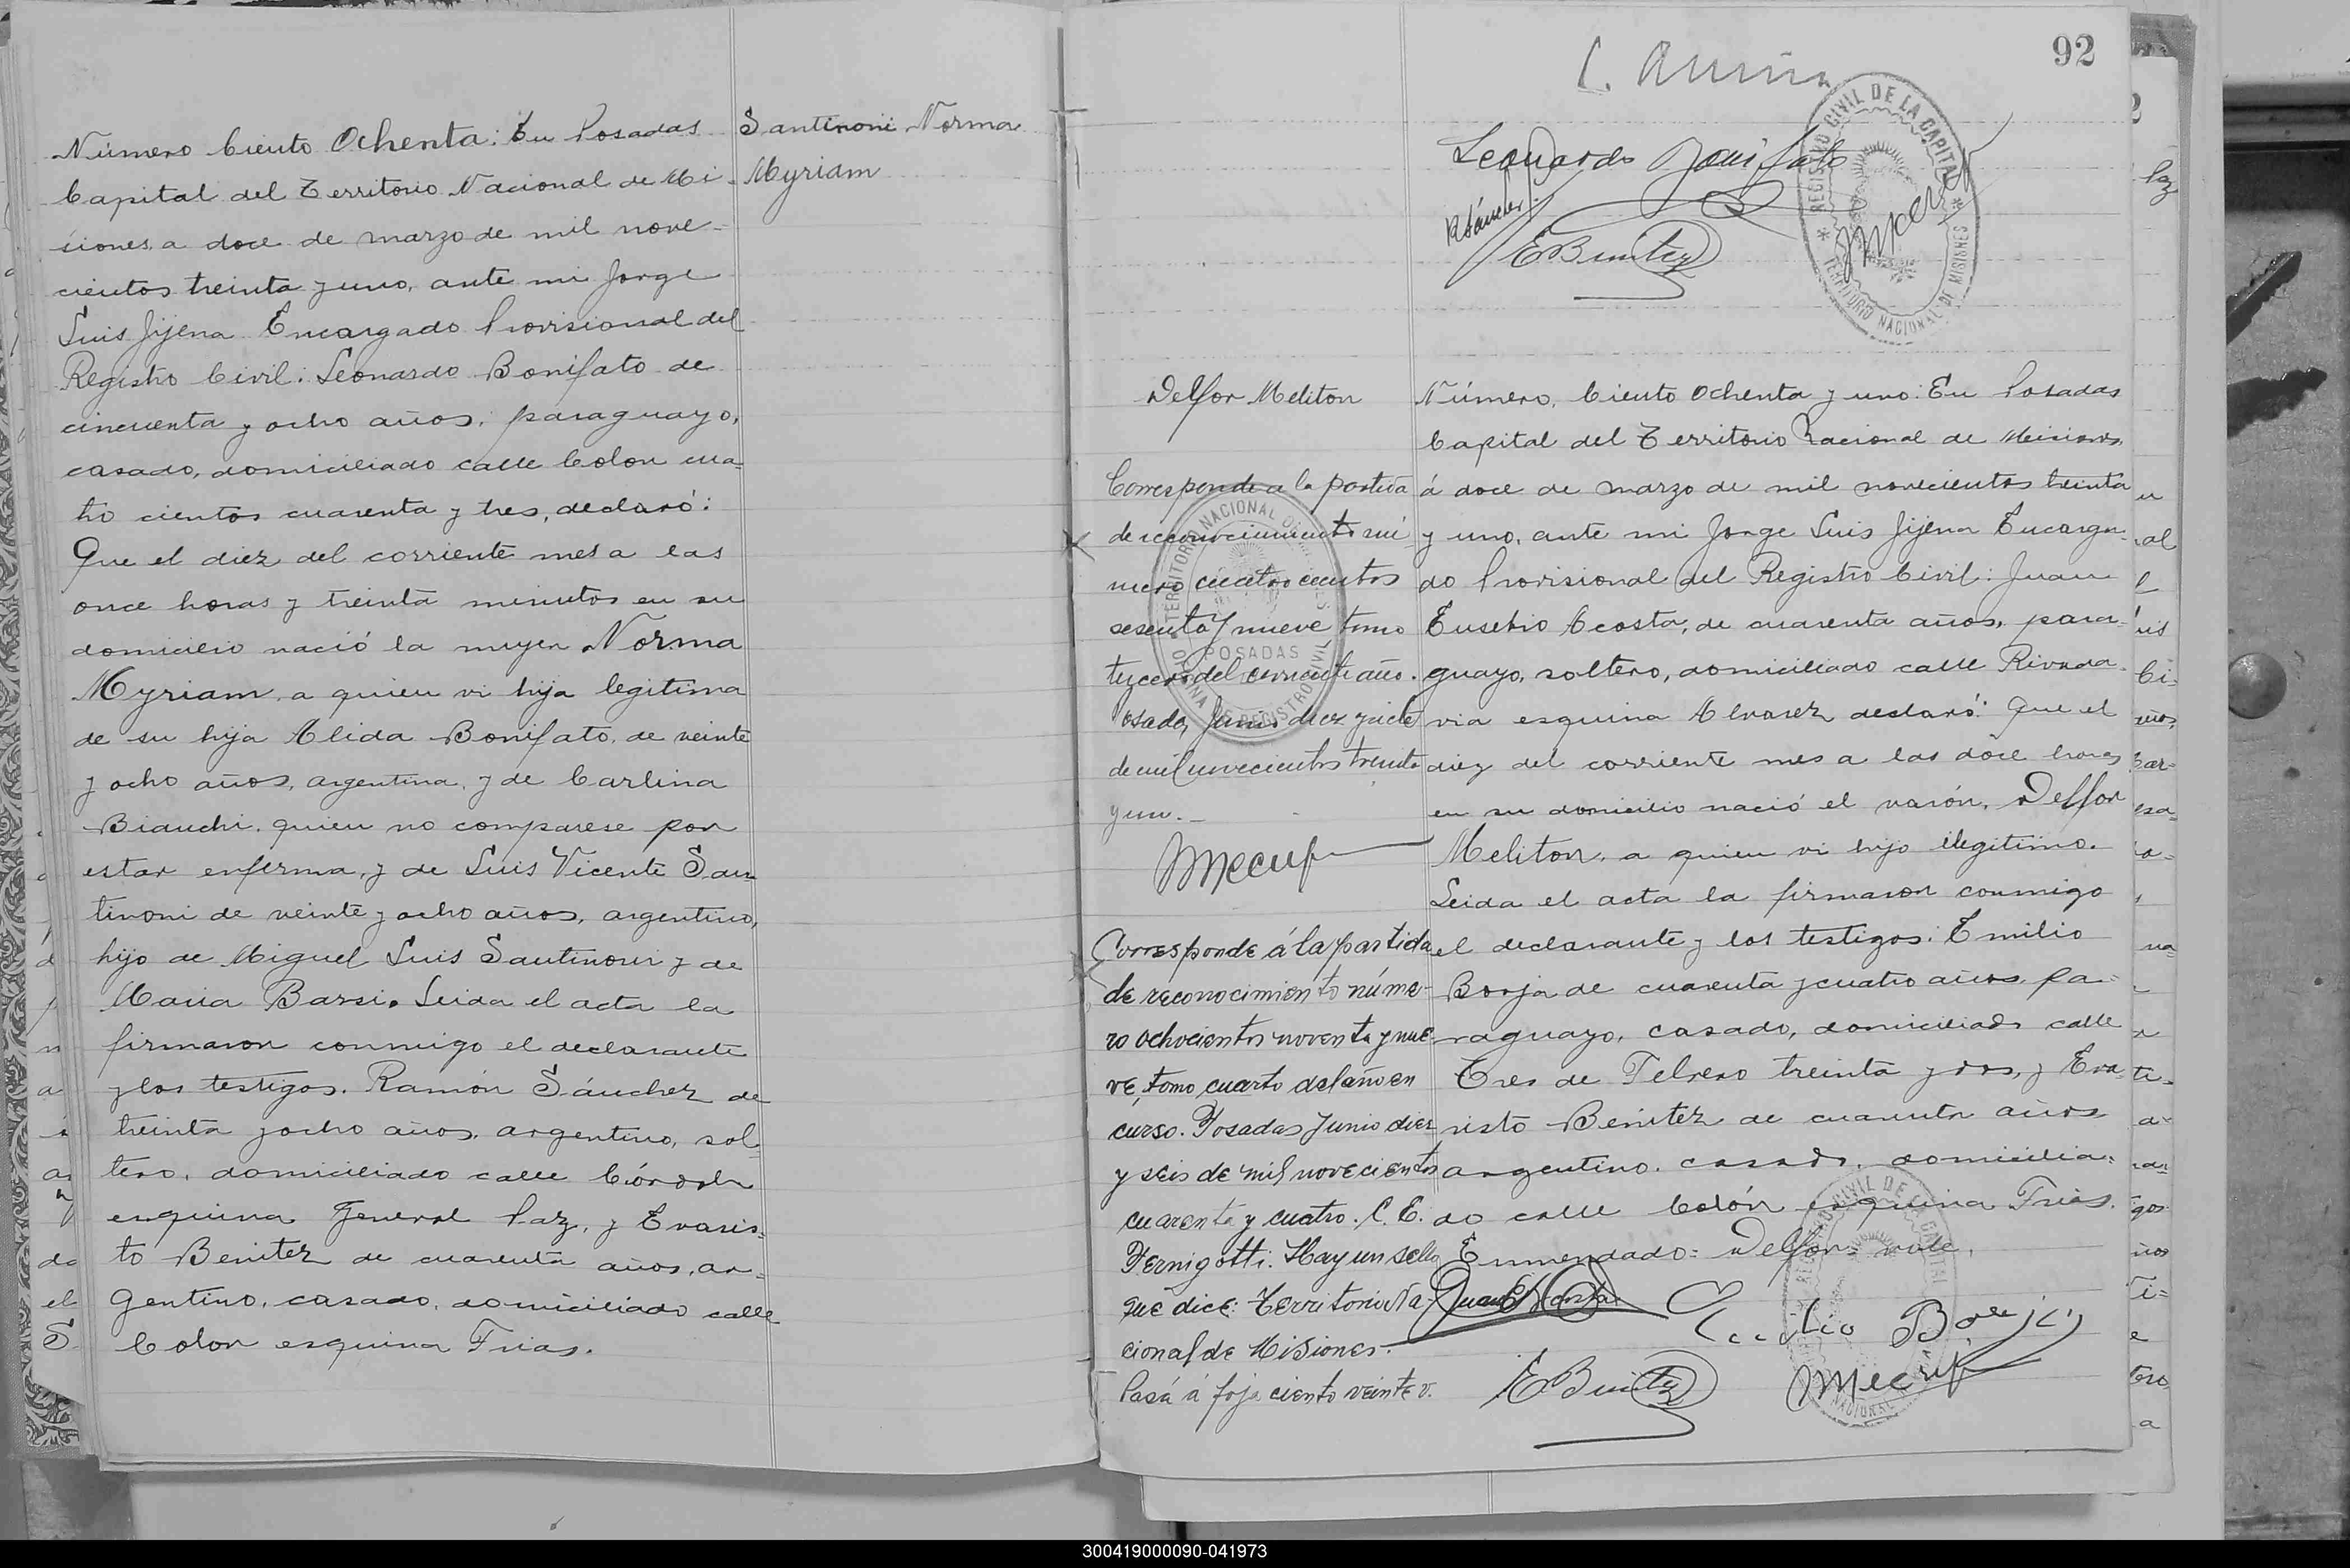 Número Ciento Ochenta: En Posadas
Capital del Territorio Nacional de Mi-
ciones, a doce de marzo de mil nove-
cientos treinta y uno, ante mi Jorge
Luis Jijena Encargado Provisional del
Registro Civil: Leonardo Bonifato de
cincuenta y ocho años, paraguayo,
casado, domiciliado calle Colon cua-
tro cientos cuarenta y tres, declaró:
Que el diez del corriente mes a las
once horas y treinta minutos en su
domicilio nació la mujer Norma
Myriam, a quien vi hija legitima
de su hija Elida Bonifato, de veinte
y ocho años, argentina, y de Carlina
Bianchi, quien no comparese por
estar enferma, y de Luis Vicente San-
tinoni de veinte y ocho años, argentino,
hijo de Miguel Luis Santinoni y de
Maria Barsi. Leida el acta la
firmaron conmigo el declarante
y los testigos. Ramón Sánchez de
treinta y ocho años, argentino, sol-
tero, domiciliado calle Córdoba
esquina General Paz, y Evaris-
to Benitez de cuarenta años, ar-
gentino, casado, domiciliado calle
Colon esquina Frias.
Santinoni Norma
Myriam
92
Leonardo Bonifato
RSánchez
EBenitez
REGISTRO CIVIL DE LA CAPITAL
TERRITORIO NACIONAL DE MISIONES
Delfor Meliton
Corresponde a la partida
de reconocimiento nú-
mero cuatro cientos
sesenta y nueve tomo
tercero del corriente año.
Posadas, Junio diez y siete
de mil novecientos treinta
y uno.-
TERRITORIO NACIONAL DE MISIONES
POSADAS
OFICINA DE REGISTRO CIVIL
Corresponde á la partida
de reconocimiento núme-
ro ochocientos noventa y nue-
ve, tomo cuarto del año en
curso. Posadas Junio diez
y seis de mil novecientos
cuarenta y cuatro. C. E.
Pernigotti. Hay un sello
que dice: Territorio Na-
cional de Misiones.
Pasa á foja ciento veinte v.
Número, Ciento Ochenta y uno: En Posadas
Capital del Territorio Nacional de Misiones,
á doce de marzo de mil novecientos treinta
y uno, ante mi Jorge Luis Jijena Encarga-
do Provisional del Registro Civil: Juan
Eusebio Acosta, de cuarenta años, para-
guayo, soltero, domiciliado calle Rivada-
via esquina Alvarez declaró: Que el
diez del corriente mes a las doce horas
en su domicilio nació el varón, Delfor
Meliton, a quien vi hijo ilegitimo.
Leida el acta la firmaron conmigo
el declarante y los testigos: Emilio
Borja de cuarenta y cuatro años, pa-
raguayo, casado, domiciliado calle
Tres de Febrero treinta y dos, y Eva-
risto Benitez de cuarenta años
argentino, casado, domicilia-
do calle Colón esquina Frias.
Enmendado: Delfor: vale.
Juan E Acosta
Emilio Borja
EBenitez
300419000090-041973